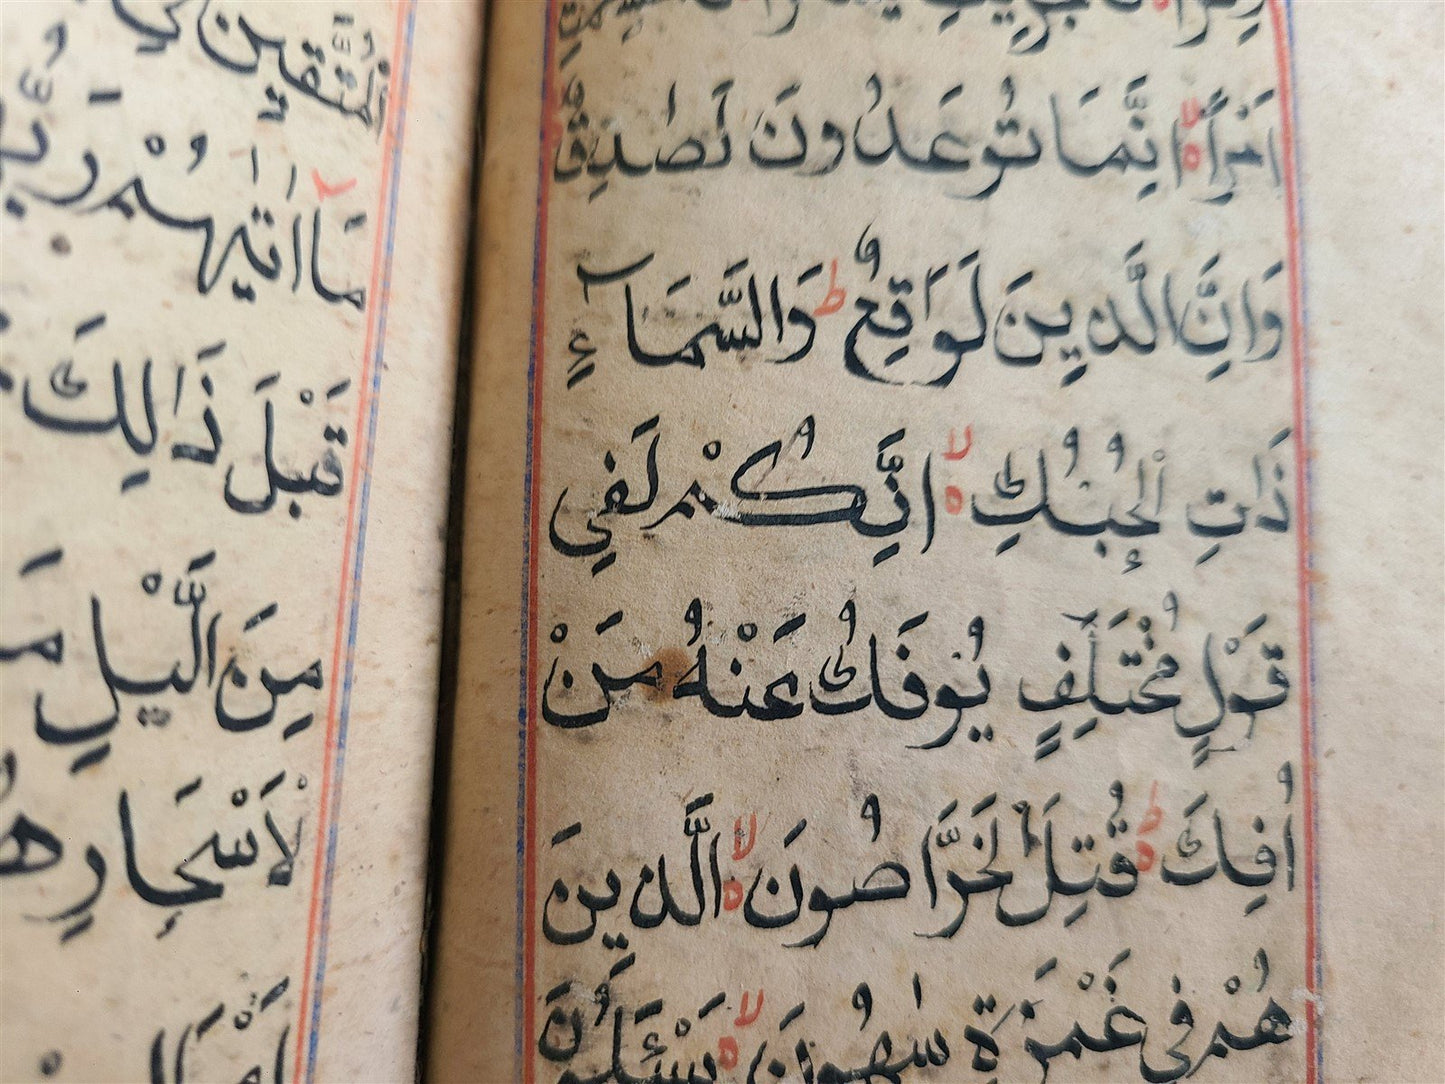 اَمْرًا ۙ اِنَّمَا تُوعَدُونَ لَصَادِقٌ
وَاِنَّ الدِّينَ لَوَاقِعٌ ؕ وَالسَّمَآءِ
ذَاتِ الْحُبُكِ ۙ اِنَّكُمْ لَفِي
قَوْلٍ مُخْتَلِفٍ يُوفَكُ عَنْهُ مَنْ
اُفِكَ ؕ قُتِلَ الْخَرَّاصُونَ ۙ الَّذِينَ
هُمْ فِي غَمْرَةٍ سَاهُونَ ۙ يَسْئَلُونَ
الْمُتَّقِينَ فِي
مَا اٰتٰيهُمْ رَبُّ
قَبْلَ ذٰلِكَ
مِنَ الَّيْلِ مَ
لْاَسْحَارِ هُ